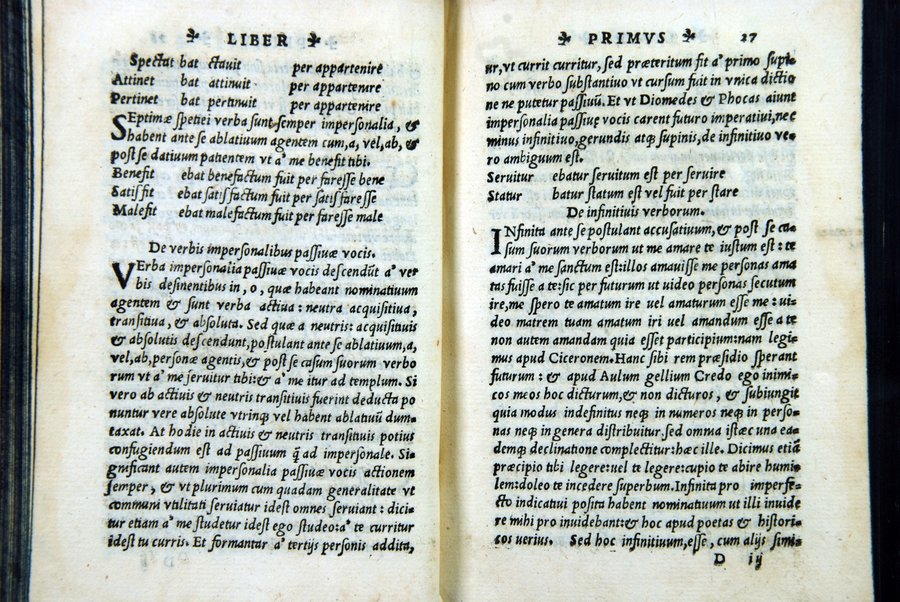 LIBER
Spectat bat ctauit per appartenire
Attinet bat attinuit per appartenire
Pertinet bat pertinuit per appartenire
SEptimæ spetiei verba sunt semper impersonalia, &
habent ante se ablatiuum agentem cum, a, vel, ab, &
post se datiuum patientem vt a' me benefit tibi.
Benefit ebat benefactum fuit per faresse bene
Satisfit ebat satisfactum fuit per satisfaresse
Malefit ebat malefactum fuit per faresse male
De verbis impersonalibus passiuæ vocis.
VErba impersonalia passiuæ vocis descendūt a' ver
bis desinentibus in, o, quæ habeant nominatiuum
agentem & sunt verba actiua: neutra acquisitiua,
transitiua, & absoluta. Sed quæ a neutris: acquisitiuis
& absolutis descendunt, postulant ante se ablatiuum, a,
vel, ab, personæ agentis, & post se casum suorum verbo
rum vt a' me seruitur tibi: & a' me itur ad templum. Si
vero ab actiuis & neutris transitiuis fuerint deducta po
nuntur vere absolute vtrinq; vel habent ablatiuū dum-
taxat. At hodie in actiuis & neutris transituis potius
confugiendum est ad passiuum q̄ ad impersonale. Si
gnificant autem impersonalia passiuæ vocis actionem
semper, & vt plurimum cum quadam generalitate vt
communi vtilitati seruiatur idest omnes seruiant: dici-
tur etiam a' me studetur idest ego studeo: a' te curritur
idest tu curris. Et formantur a' tertijs personis addita,
PRIMVS 27
ur, vt currit curritur, sed præteritum fit a' primo supi-
no cum verbo substantiuo vt cursum fuit in vnica dictio
ne ne putetur passiuū. Et vt Diomedes & Phocas aiunt
impersonalia passiuę vocis carent futuro imperatiui, nec
minus infinitiuo, gerundis atq; supinis, de infinitiuo ve-
ro ambiguum est.
Seruitur ebatur seruitum est per seruire
Statur batur statum est vel fuit per stare
De infinitiuis verborum.
INfinita ante se postulant accusatiuum, & post se ca-
sum suorum verborum ut me amare te iustum est: te
amari a' me sanctum est: illos amauisse me personas ama
tas fuisse a te: sic per futurum ut uideo personas secutum
ire, me spero te amatum ire uel amaturum esse me: ui-
deo matrem tuam amatum iri uel amandum esse a te
non autem amandam quia esset participium: nam legi-
mus apud Ciceronem. Hanc sibi rem præsidio sperant
futurum: & apud Aulum gellium Credo ego inimi-
cos meos hoc dicturum, & non dicturos, & subiungit
quia modus indefinitus neq; in numeros neq; in perso-
nas neq; in genera distribuitur, sed omnia istæc una ea-
demq; declinatione complectitur: hæc ille. Dicimus etiā
præcipio tibi legere: uel te legere: cupio te abire humi-
lem: doleo te incedere superbum. Infinita pro imperfe-
cto indicatiui posita habent nominatiuum ut illi inuide
re mihi pro inuidebant: & hoc apud poetas & histori-
cos uerius. Sed hoc infinitiuum, esse, cum alijs simi-
D ij